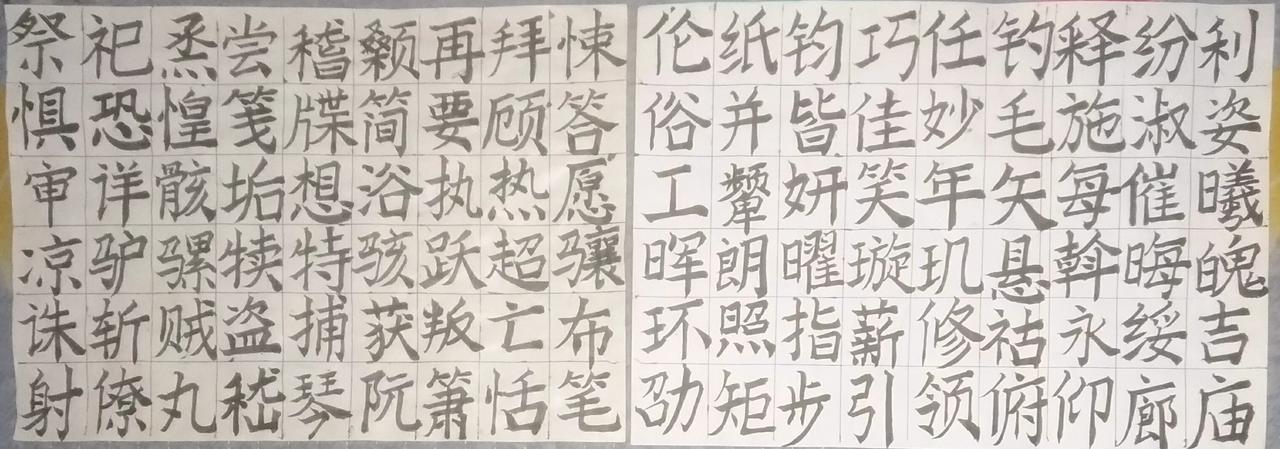 祭祀烝尝稽颡再拜悚
惧恐惶笺牒简要顾答
审详骸垢想浴执热愿
凉驴骡犊特骇跃超骧
诛斩贼盗捕获叛亡布
射僚丸嵇琴阮箫恬笔
伦纸钧巧任钓释纷利
俗并皆佳妙毛施淑姿
工颦妍笑年矢每催曦
晖朗曜璇玑悬斡晦魄
环照指薪修祜永绥吉
劭矩步引领俯仰廊庙